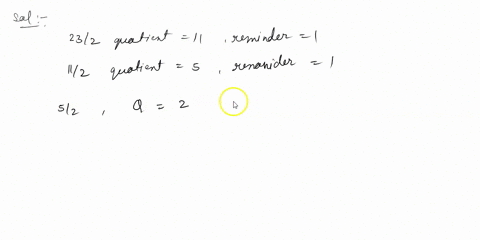 Sol :-
23/2 quotient = 11 , reminder = 1
11/2 quotient = 5 , remainder = 1
5/2 , Q = 2